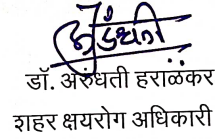 अरुंधती
डॉ. अरुंधती हराळकर
शहर क्षयरोग अधिकारी